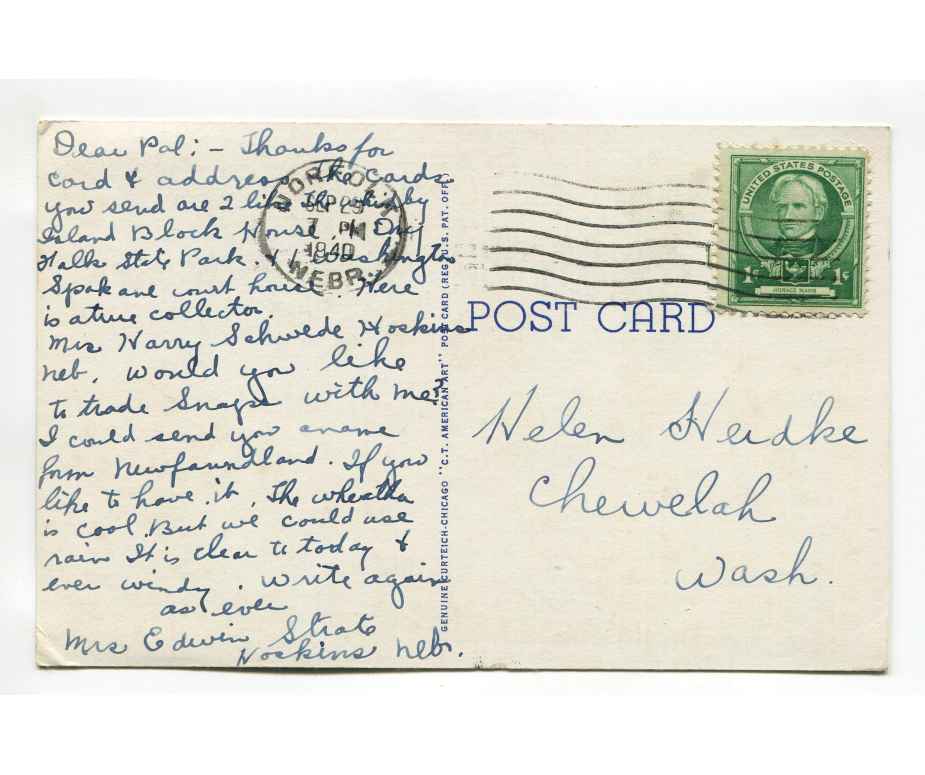 Dear Pal: - Thanks for
card & address The Cards
you send are 2 like The whidby
Island Block House & Dry
Falls State Park. & Washington
Spokane court house Here
is a true collector.
Mrs Harry Schwede Hoskins
Neb. Would you like
to trade Snaps with me?
I could send you a name
form Newfaundland. If you
like to have it. The wheather
is cool, But we could use
rain It is clear to today &
ever windy. Write again
as ever
Mrs Edwin Strate
Hoskins Nebr.
NORFOLK
SEP 25
7 PM
1940
NEBR.
GENUINE CURTEICH-CHICAGO "C.T. AMERICAN ART" POST CARD (REG. U.S. PAT. OFF.)
UNITED STATES POSTAGE
1¢ 1¢
HORACE MANN
POST CARD
Helen Heidke
Chewelah
Wash.